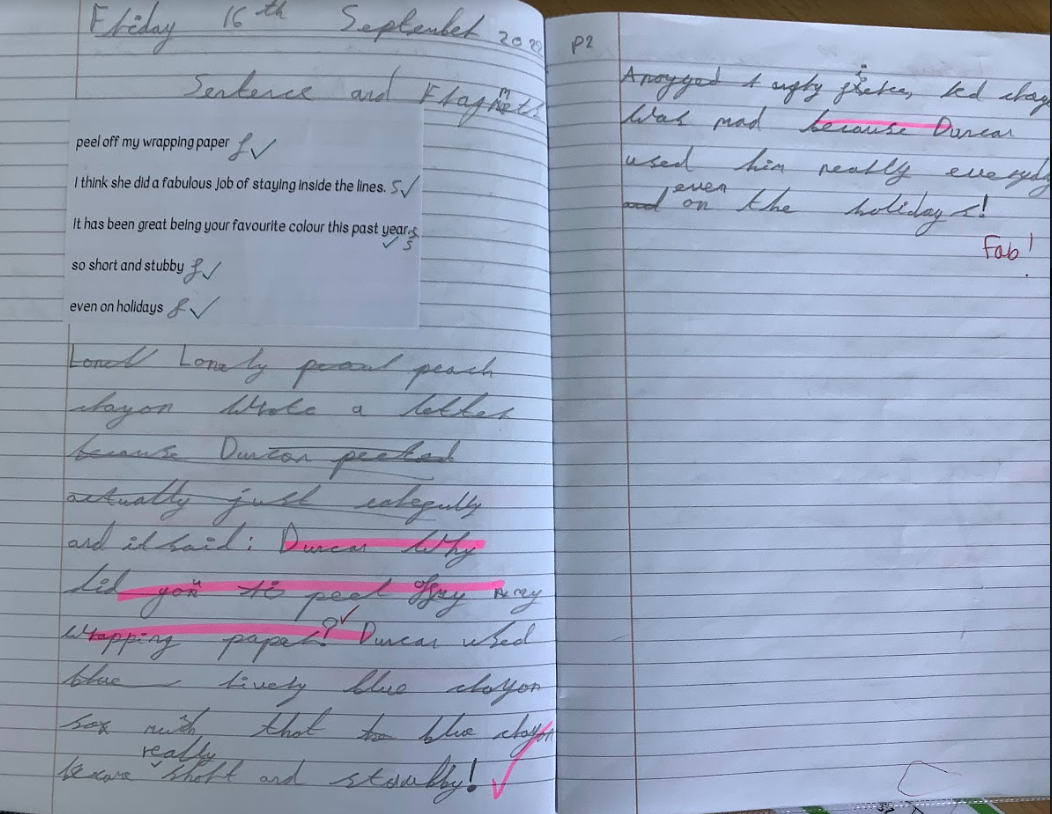 Friday 16th September 2022
Sentence and Fragmets
peel off my wrapping paper f ✓
I think she did a fabulous job of staying inside the lines. S ✓
It has been great being your favourite colour this past year. s ✓
so short and stubby f ✓
even on holidays f ✓
Lonely peach
crayon wrote a letter
because Duncan peeled
actually just
and it said: Duncan why
did you peel off my
wrapping paper? ✓ Duncan used
blue lively blue crayon
so much that blue crayon
became really short and stoubby! ✓
P2
Anoyyed & ugly red crayo
was mad because Duncan
used him really everyday
and even on the holidays!
Fab!